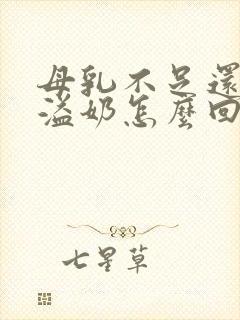 母乳不足還
溢奶怎麼回
七星草